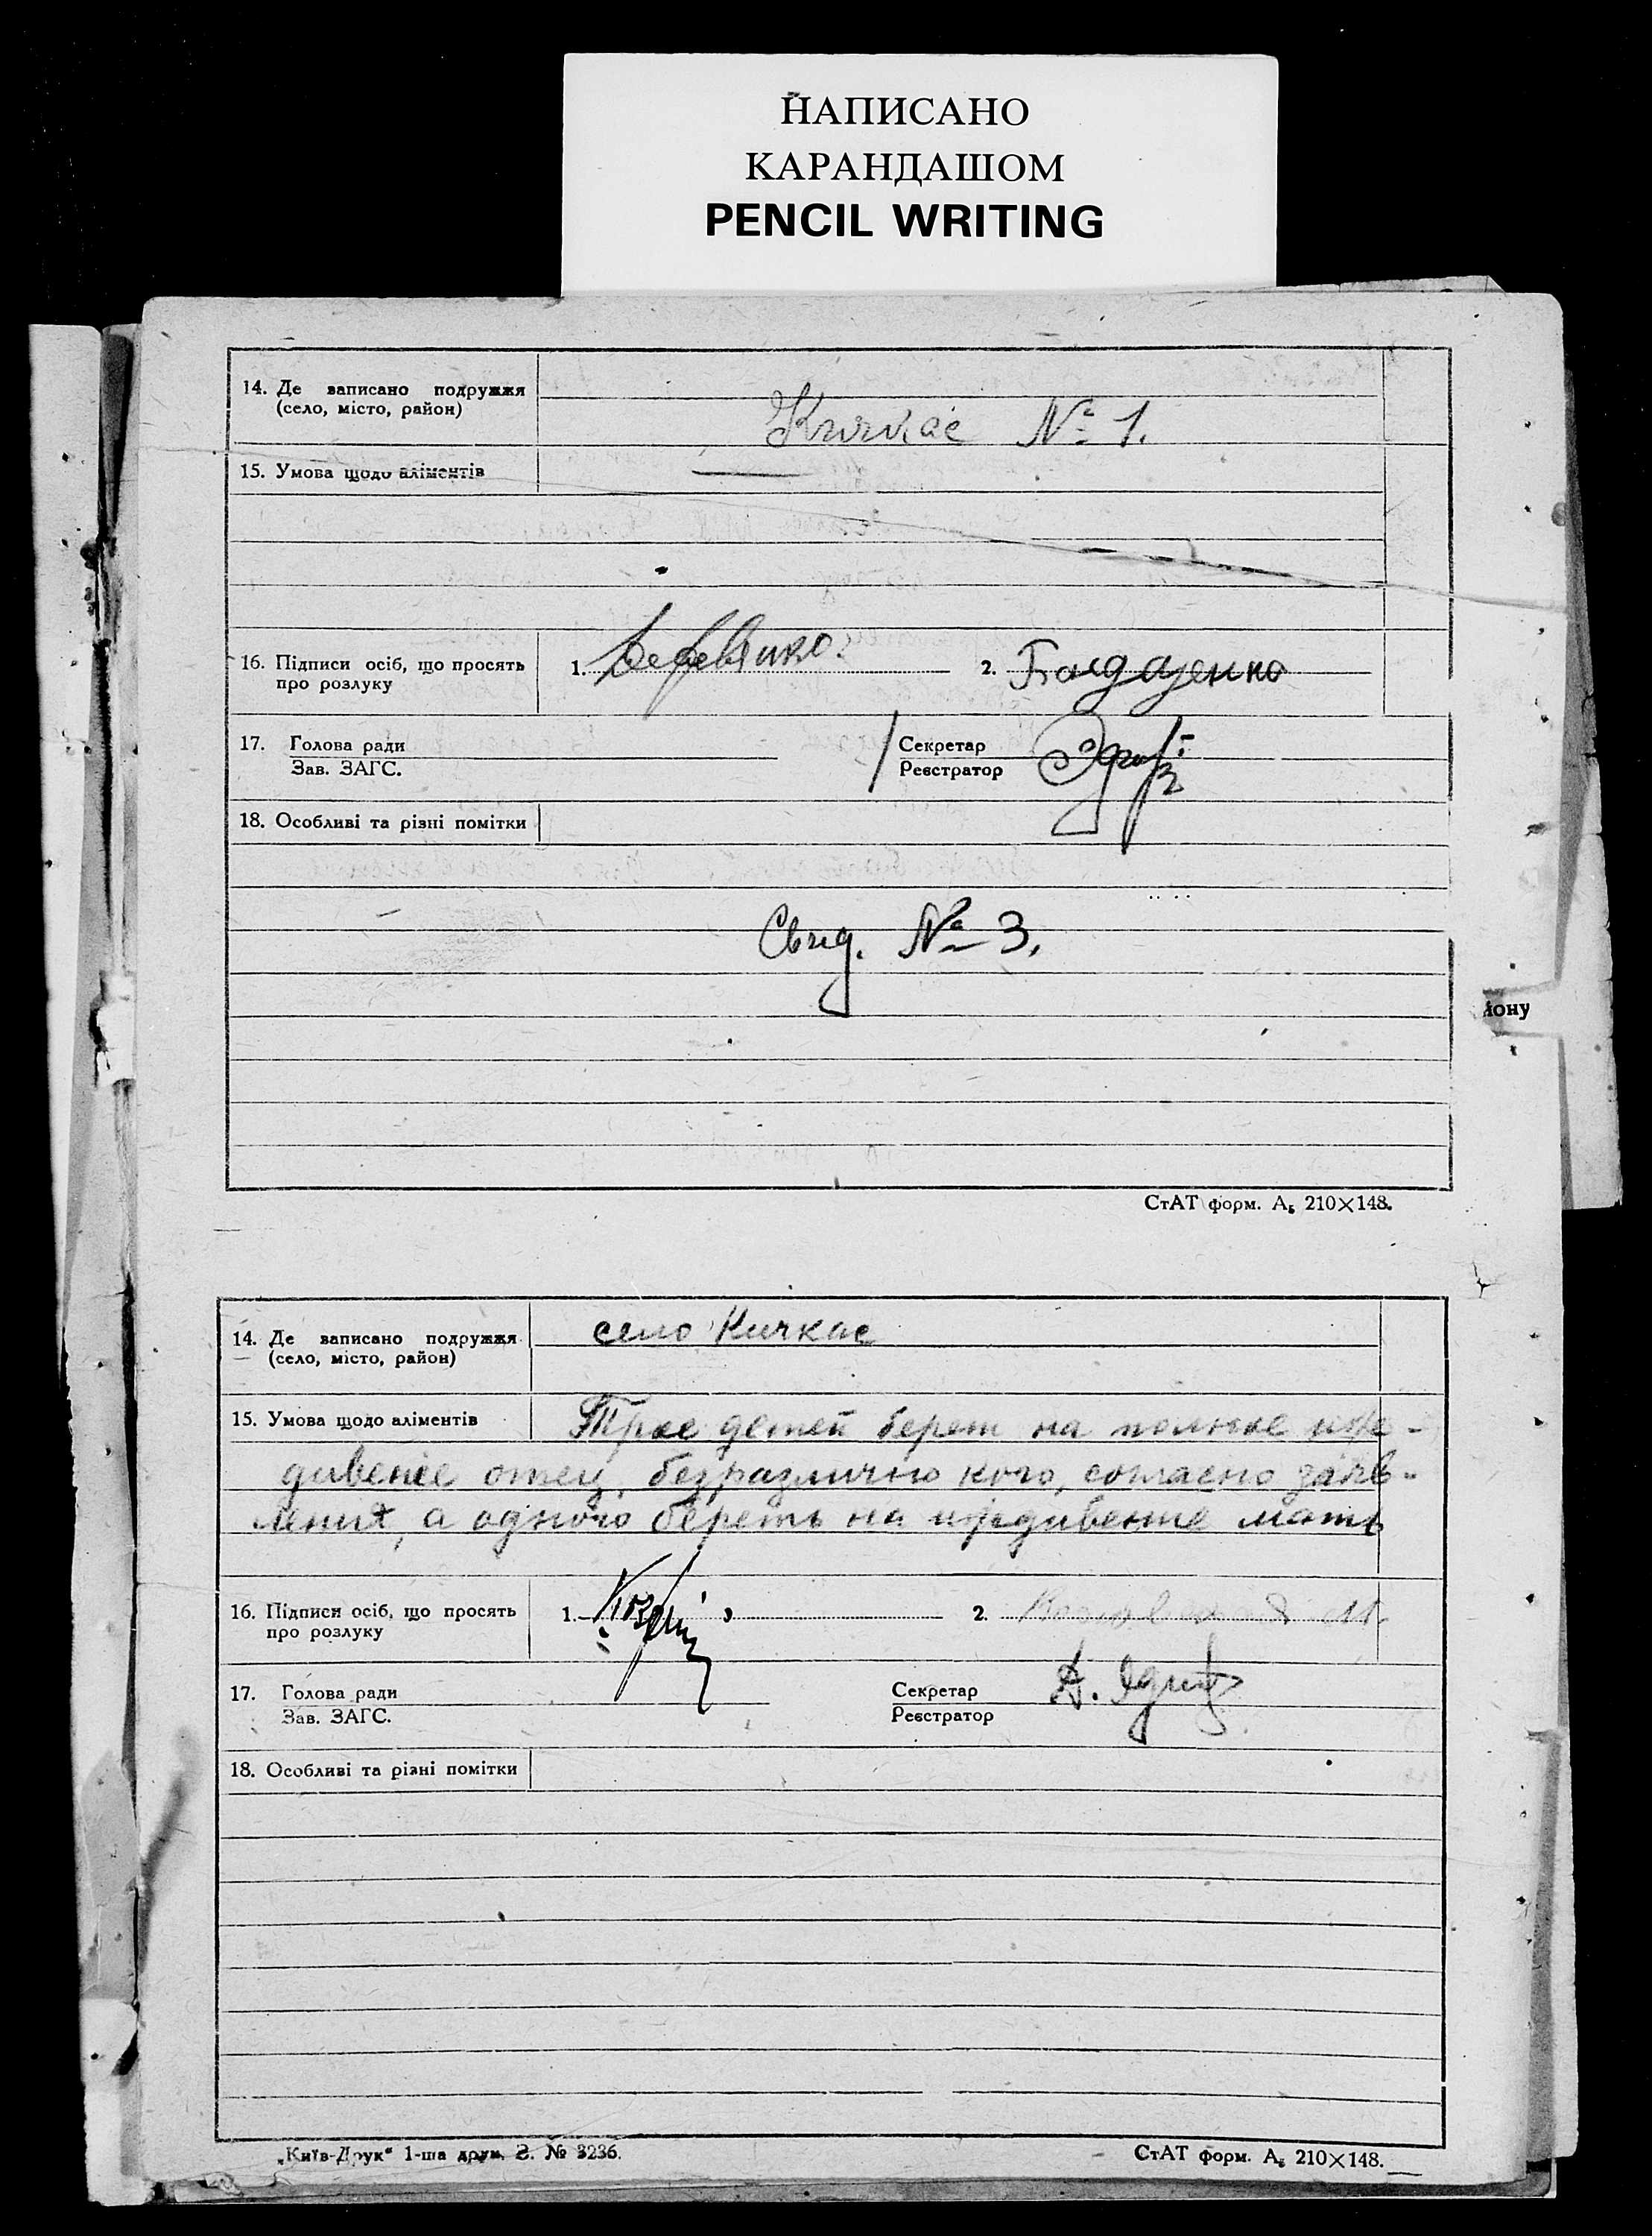 НАПИСАНО
КАРАНДАШОМ
PENCIL WRITING
14. Де записано подружжя
(село, місто, район)
Кичкас № 1.
15. Умова щодо аліментів
16. Підписи осіб, що просять
про розлуку
1. Деревянко
2. Бондаренко
17. Голова ради
Зав. ЗАГС.
Секретар
Реєстратор
18. Особливі та різні помітки
Свид. № 3.
йону
СтАТ форм. А₅ 210×148.
14. Де записано подружжя
(село, місто, район)
село Кичкас
15. Умова щодо аліментів
Трое детей берет на полное иже-
дивение отец, безразлично кого, согласно заяв-
ления, а одного береть на иждивение мать
16. Підписи осіб, що просять
про розлуку
1.
2.
17. Голова ради
Зав. ЗАГС.
Секретар
Реєстратор
А.
18. Особливі та різні помітки
„Київ-Друк“ 1-ша друк. З. № 3236.
СтАТ форм. А₅ 210×148.